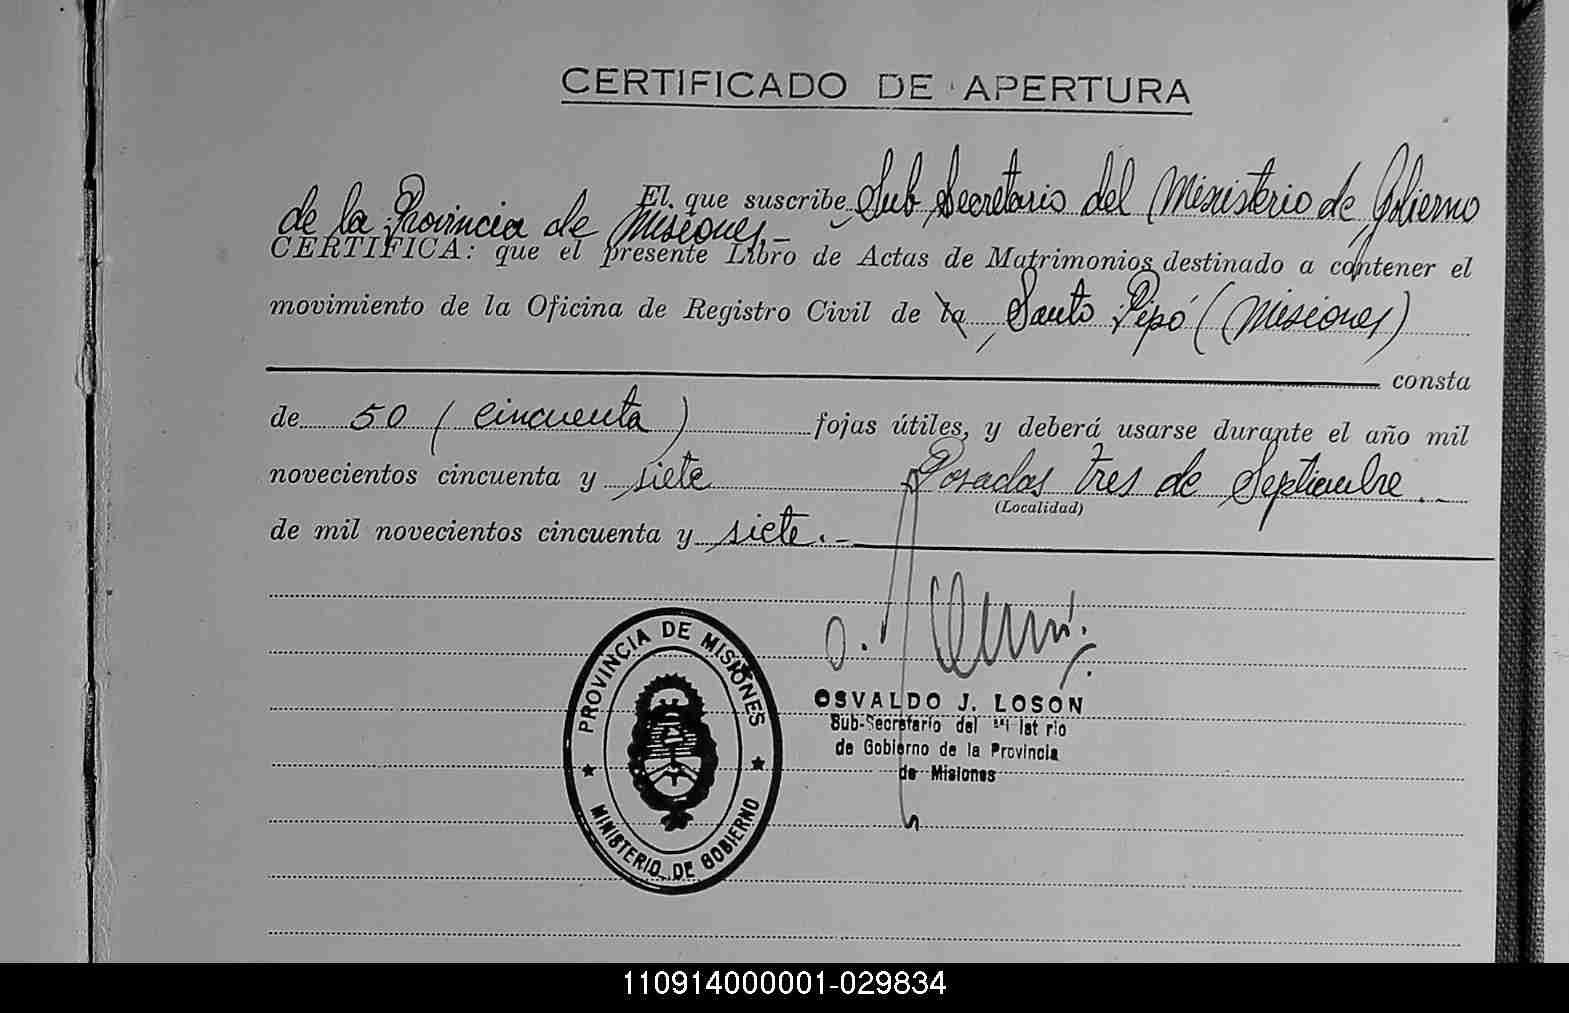 CERTIFICADO DE APERTURA
El que suscribe Sub Secretario del Ministerio de Gobierno
de la Provincia de Misiones.-
CERTIFICA: que el presente Libro de Actas de Matrimonios destinado a contener el
movimiento de la Oficina de Registro Civil de la Santo Pipó (Misiones)
consta
de 50 (cincuenta) fojas útiles, y deberá usarse durante el año mil
novecientos cincuenta y siete Posadas tres de Septiembre
(Localidad)
de mil novecientos cincuenta y siete.-
PROVINCIA DE MISIONES
MINISTERIO DE GOBIERNO
OSVALDO J. LOSON
Sub-Secretario del
de Gobierno de la Provincia
de Misiones
110914000001-029834